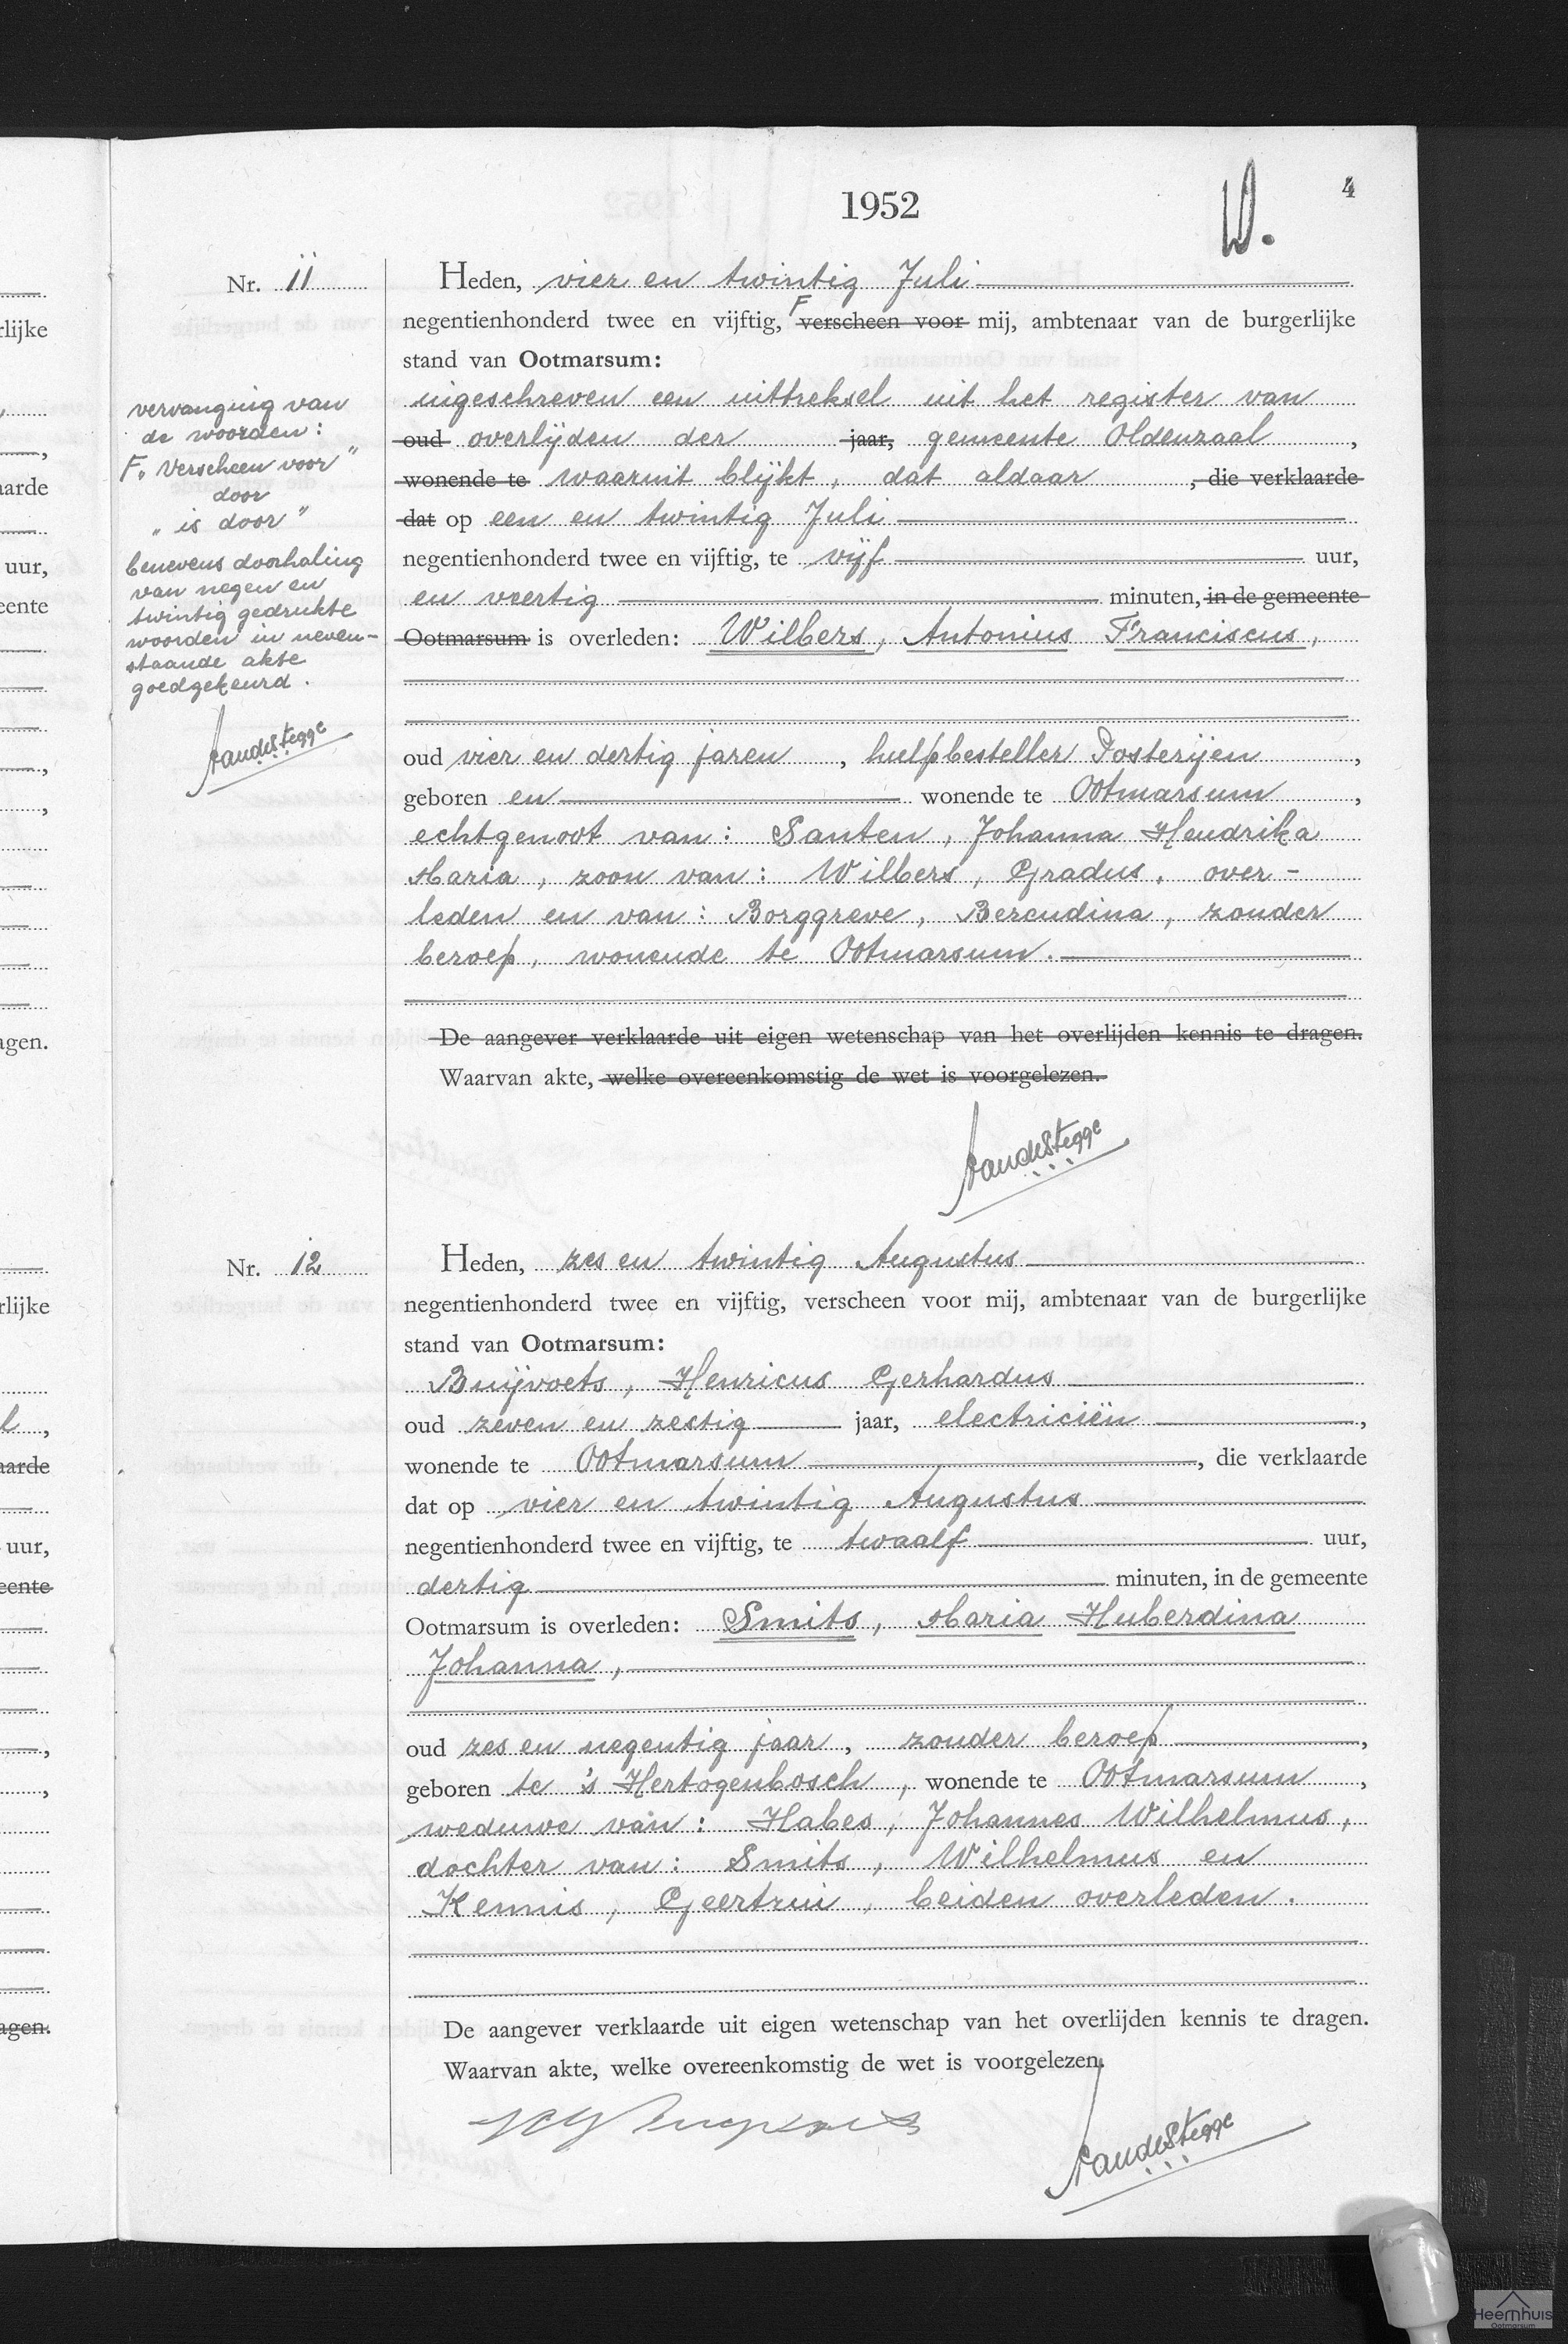 1952
W.
4
Nr. 11
Heden, vier en twintig Juli
negentienhonderd twee en vijftig, F verscheen voor mij, ambtenaar van de burgerlijke
stand van Ootmarsum:
ingeschreven een uittreksel uit het register van
oud overlijden der jaar, gemeente Oldenzaal,
wonende te waaruit blijkt, dat aldaar, die verklaarde
dat op een en twintig Juli
negentienhonderd twee en vijftig, te vijf uur,
en veertig minuten, in de gemeente
Ootmarsum is overleden: Wilbers, Antonius Franciscus,
oud vier en dertig jaren, hulpbesteller Posterijen,
geboren en wonende te Ootmarsum,
echtgenoot van: Santen, Johanna Hendrika
Maria, zoon van: Wilbers, Gradus, over-
leden en van: Borggreve, Berendina, zonder
beroep, wonende te Ootmarsum.
De aangever verklaarde uit eigen wetenschap van het overlijden kennis te dragen.
Waarvan akte, welke overeenkomstig de wet is voorgelezen.
vandeStegge
vervanging van
de woorden:
F. Verscheen voor"
door
"is door"
benevens doorhaling
van negen en
twintig gedrukte
woorden in neven-
staande akte
goedgekeurd.
vandeStegge
Nr. 12
Heden, zes en twintig Augustus
negentienhonderd twee en vijftig, verscheen voor mij, ambtenaar van de burgerlijke
stand van Ootmarsum:
Buijvoets, Henricus Gerhardus
oud zeven en zestig jaar, electriciën,
wonende te Ootmarsum, die verklaarde
dat op vier en twintig Augustus
negentienhonderd twee en vijftig, te twaalf uur,
dertig minuten, in de gemeente
Ootmarsum is overleden: Smits, Maria Huberdina
Johanna,
oud zes en negentig jaar, zonder beroep,
geboren te 's Hertogenbosch, wonende te Ootmarsum,
weduwe van: Habes, Johannes Wilhelmus,
dochter van: Smits, Wilhelmus en
Kennis, Geertrui, beiden overleden.
De aangever verklaarde uit eigen wetenschap van het overlijden kennis te dragen.
Waarvan akte, welke overeenkomstig de wet is voorgelezen.
vandeStegge
rlijke
aarde
uur,
eente
agen.
rlijke
l,
aarde
uur,
eente
agen.
Heemhuis
Ootmarsum